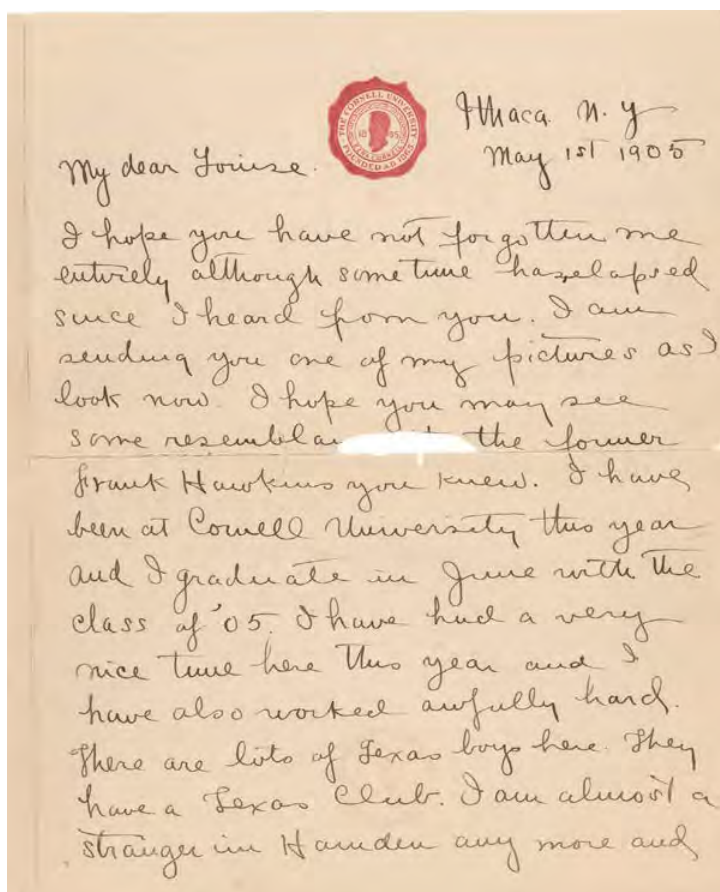 THE CORNELL UNIVERSITY
FOUNDED A.D. 1865
Ithaca. N. Y
May 1st 1905
My dear Louise.
I hope you have not forgotten me
entirely although some time has elapsed
since I heard from you. I am
sending you one of my pictures as I
look now. I hope you may see
some resembla the former
Frank Hawkins you knew. I have
been at Cornell University this year
and I graduate in June with the
class of '05. I have had a very
nice time here this year and I
have also worked awfully hard.
There are lots of Texas boys here. They
have a Texas Club. I am almost a
stranger in Hamden any more and